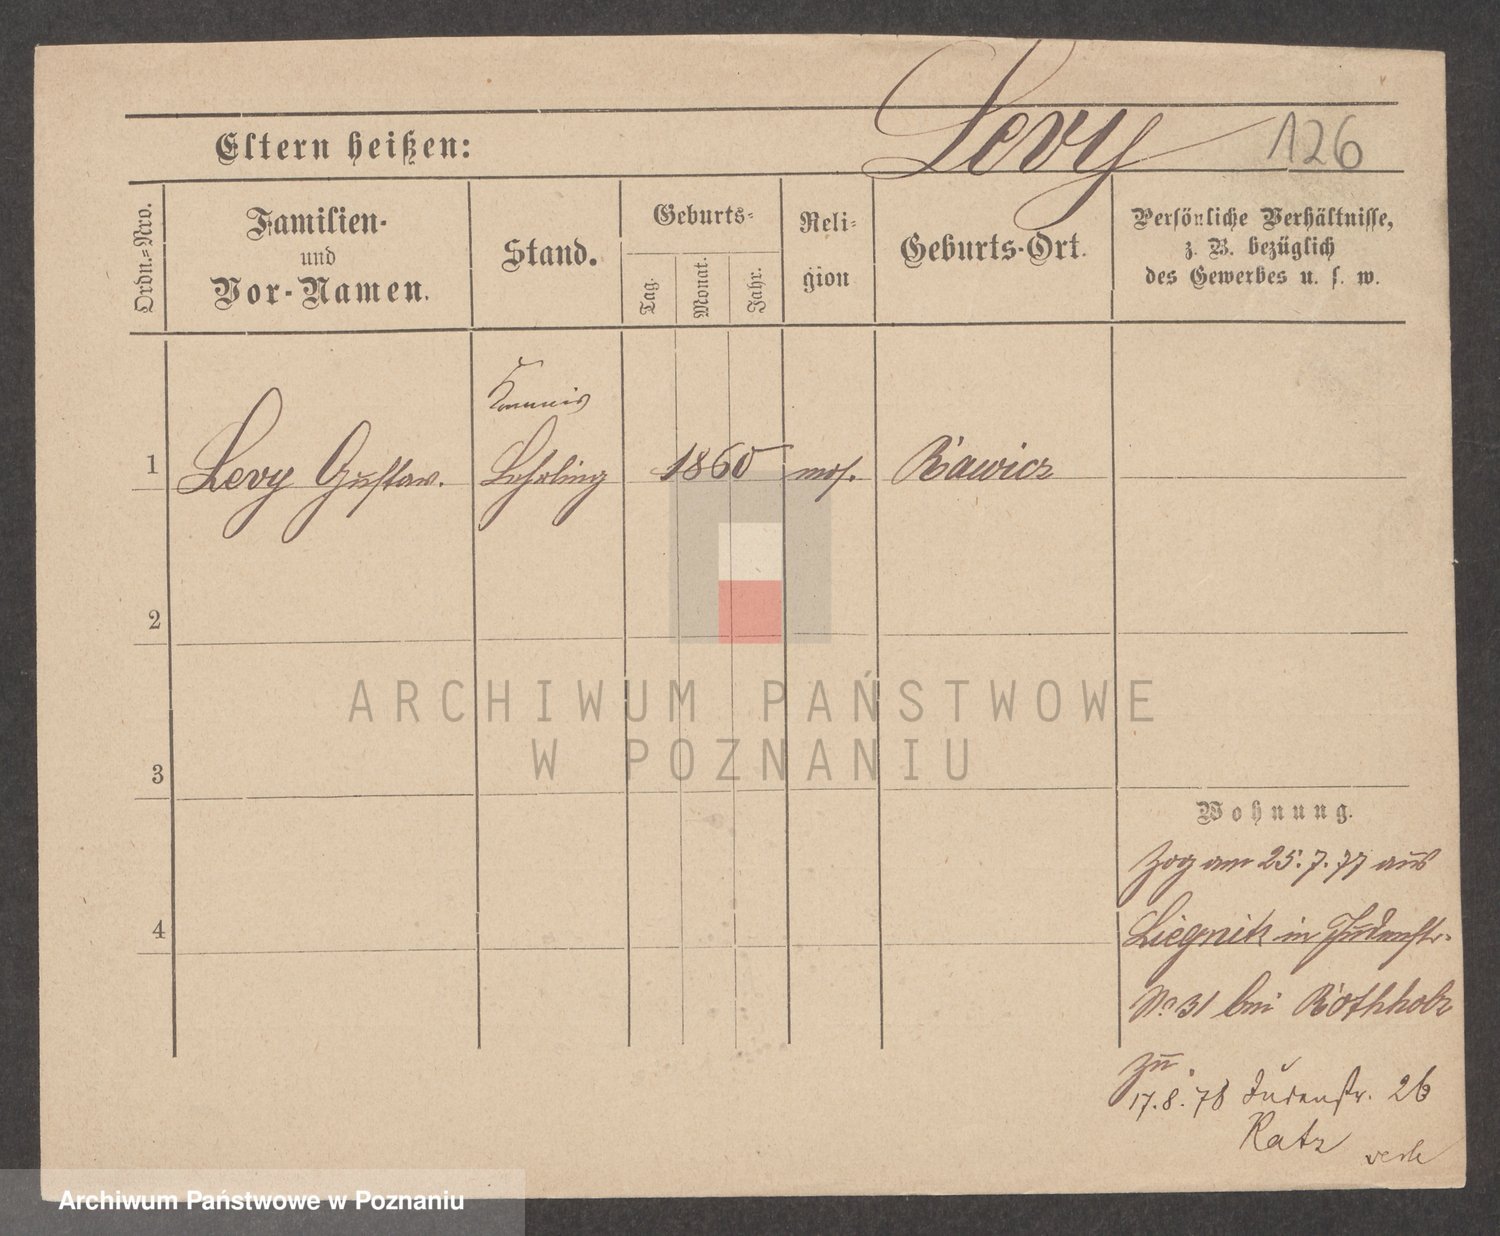 Levy 126
Eltern heißen:
Ordn.=Nro.
Familien-
und
Vor-Namen.
Stand.
Geburts=
Tag.
Monat.
Jahr.
Reli=
gion
Geburts-Ort.
Persönliche Verhältnisse,
z. B. bezüglich
des Gewerbes u. s. w.
Kommis
1 Levy Gustav. Lehrling 1860 mos. Rawicz
2
ARCHIWUM PAŃSTWOWE
W POZNANIU
3
Wohnung.
Zog am 25.7.77 aus
4
Liegnitz in Judenstr.
No 31 bei Rothholz
zu.
17.8.78 Judenstr. 26
Katz
Archiwum Państwowe w Poznaniu